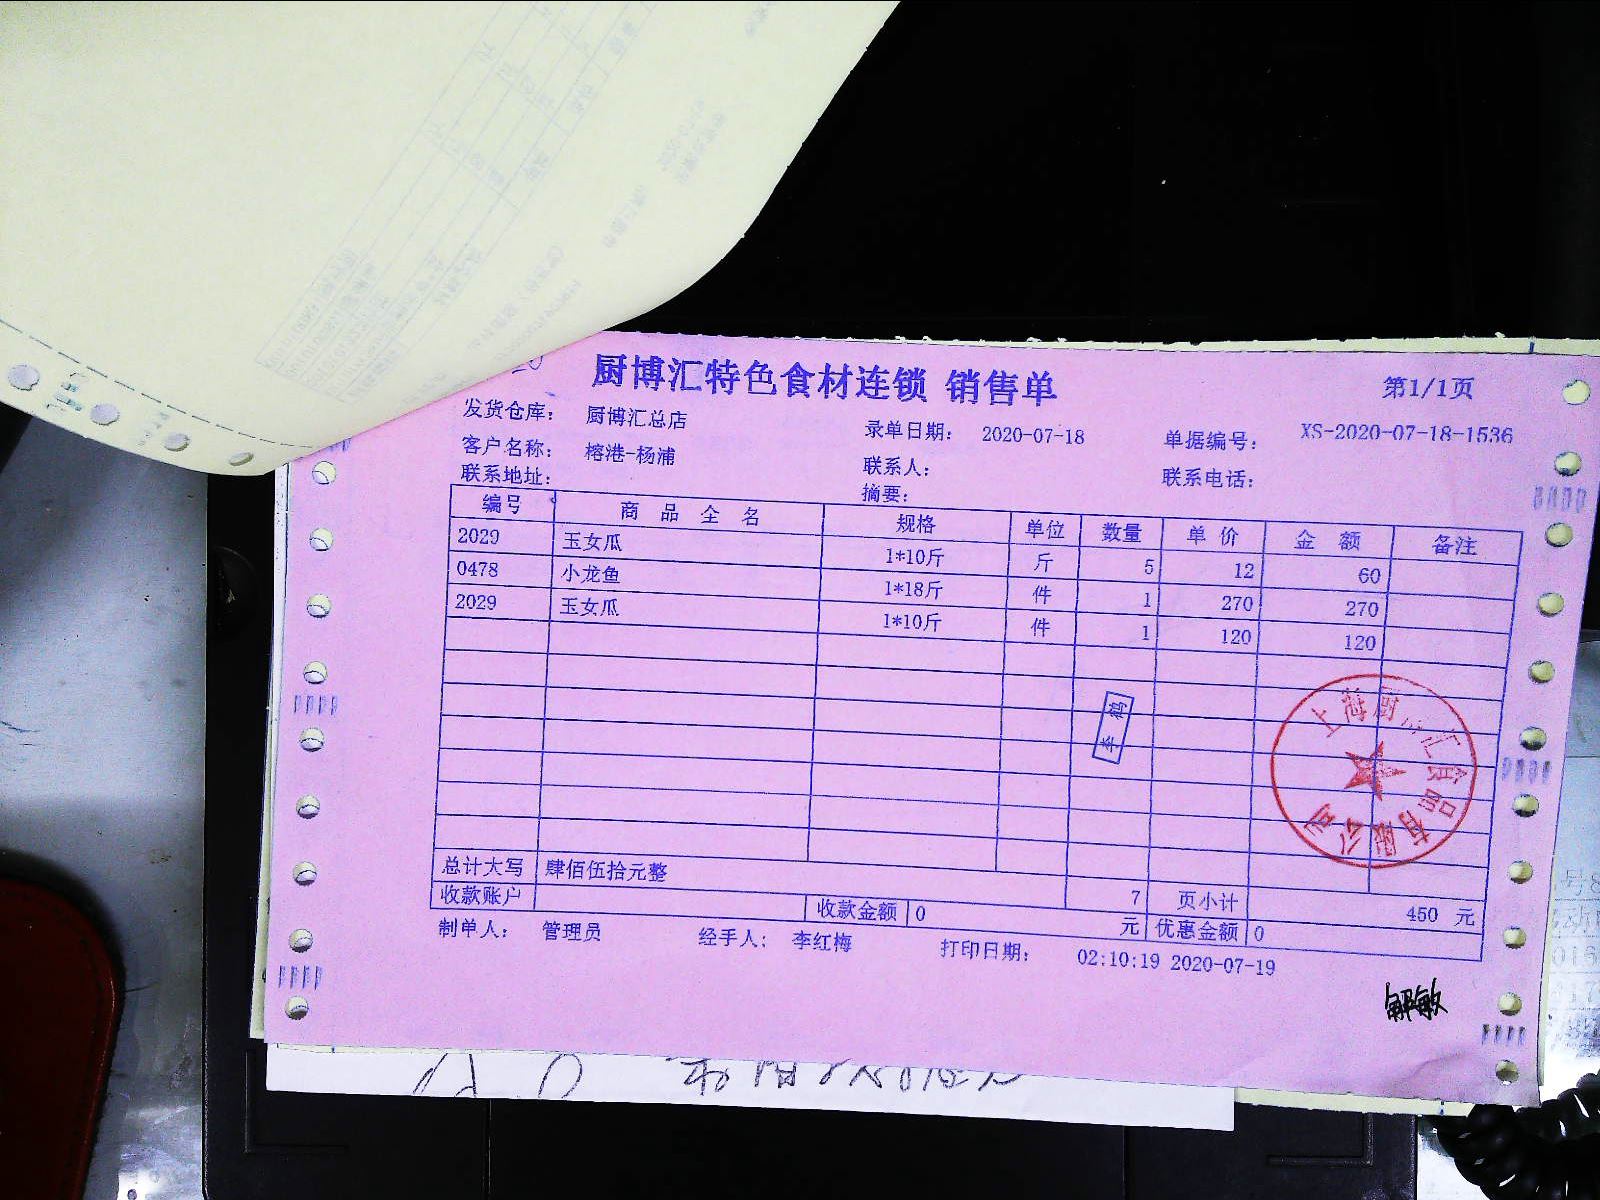 厨博汇特色食材连锁 销售单 第1/1页
发货仓库： 厨博汇总店 录单日期： 2020-07-18 单据编号： XS-2020-07-18-1536
客户名称： 榕港-杨浦 联系人： 联系电话：
联系地址： 摘要：
编号 商品全名 规格 单位 数量 单价 金额 备注
2029 玉女瓜 1*10斤 斤 5 12 60
0478 小龙鱼 1*18斤 件 1 270 270
2029 玉女瓜 1*10斤 件 1 120 120
李鹅
上海厨博汇食品有限公司
总计大写 肆佰伍拾元整 7 页小计 450 元
收款账户 收款金额 0 元 优惠金额 0
制单人： 管理员 经手人： 李红梅 打印日期： 02:10:19 2020-07-19
解敏